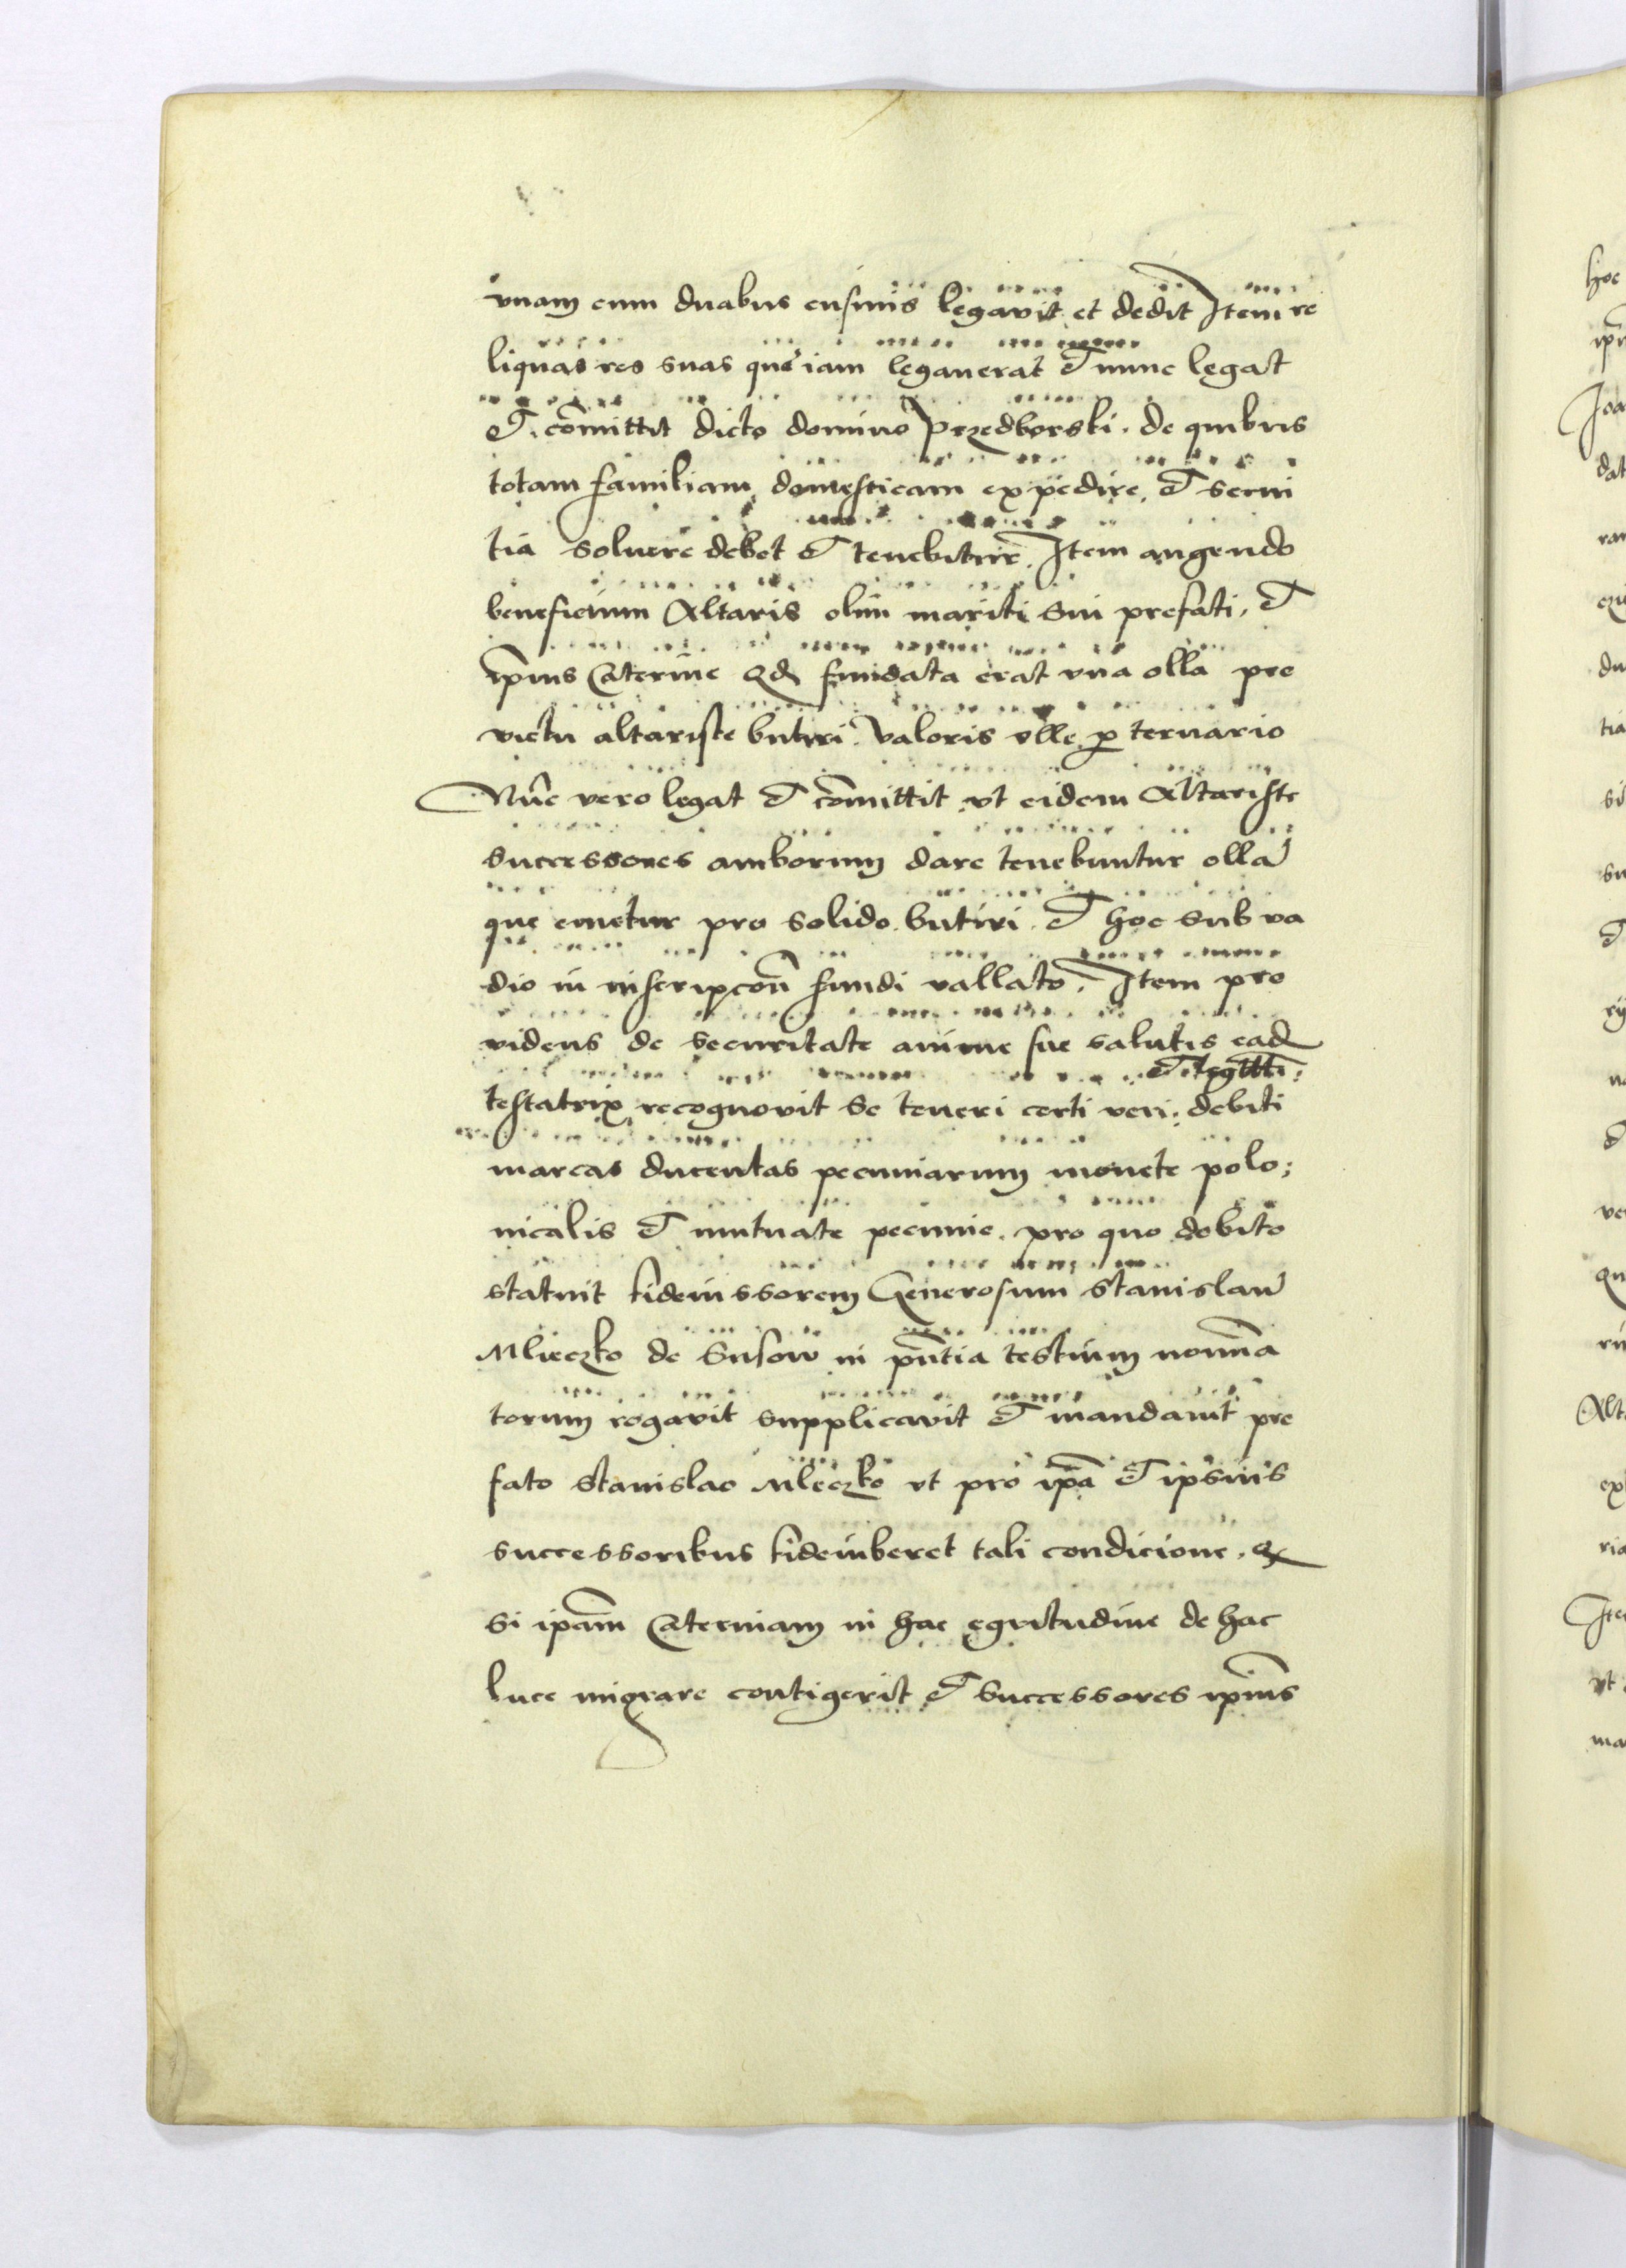 vnam cum duabus cusinis legavit et dedit Item re
liquas res suas que iam legauerat et nunc legat
et comittit dicto domino Przedborski. de quibus
totam familiam domesticam expedire, et serui
tia soluere debet et tenebitur. Item augendo
beneficium Altaris olim mariti sui prefati, et
ipius Caterine qd fundata erat vna olla pre
victu altariste butiri. valoris olle p ternario
Nuc vero legat et comittit vt eidem Altariste
successores amborum dare tenebuntur olla
que emetur pro solido butiri. et hoc sub va
dio in inscripcon fundi vallato. Item pro
videns de securitate anime sue salutis ead
et legtti:
testatrix recognovit se teneri certi veri, debiti
marcas ducentas pecuniarum monete polo;
nicalis et mutuate pecunie. pro quo debito
statuit fideiussorem Generosum Stanislau
Mlieczko de Susow in pntia testium nomina
torum rogavit supplicavit et mandauit pre
fato Stanislao Mleczko vt pro ipa et ipsius
successoribus fideiuberet tali condicione. q
si ipam Caterinam in hac egritudine de hac
luce migrare contigerit et successores ipius
hoc
Joa
dat
du
tia
si
su
Alt
ria
vt
ma